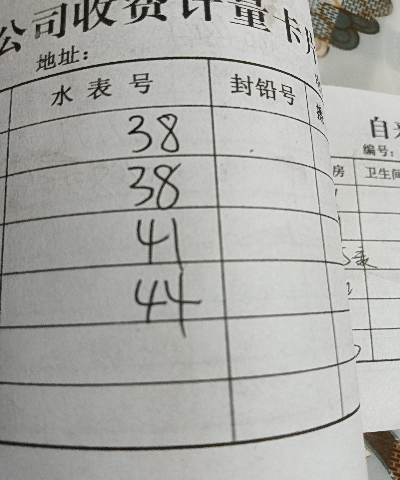 公司收费计量卡片
地址:
水表号 封铅号
38
38
41
44
自来
编号:
房 卫生间